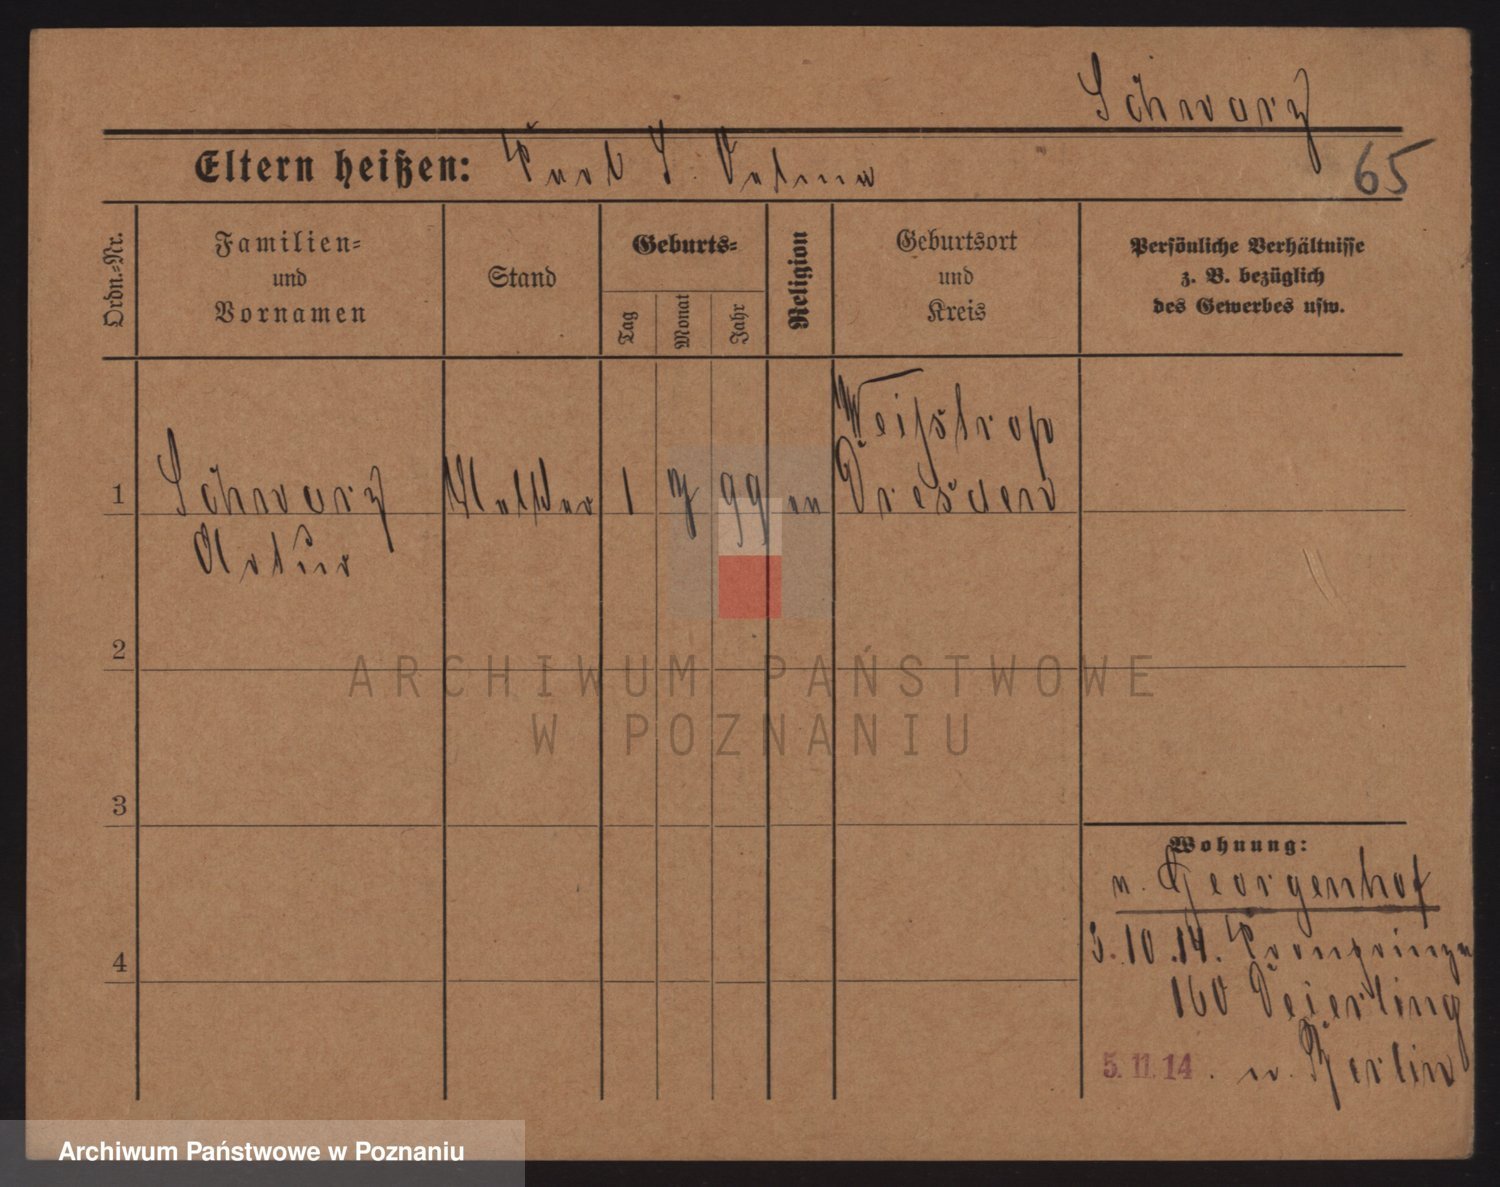 Schwarz
65
Eltern heißen: Karl S.
Ordn.-Nr.
Familien-
und
Vornamen
Stand
Geburts-
Tag
Monat
Jahr
Religion
Geburtsort
und
Kreis
Persönliche Verhältnisse
z. B. bezüglich
des Gewerbes usw.
1
Schwarz
Artur
1
7
99
Weißtrop
Dresden
2
3
4
Wohnung:
n. Georgenhof
3.10.14. Kronprinzen
160
5. 11. 14. n. Berlin
ARCHIWUM PAŃSTWOWE
W POZNANIU
Archiwum Państwowe w Poznaniu